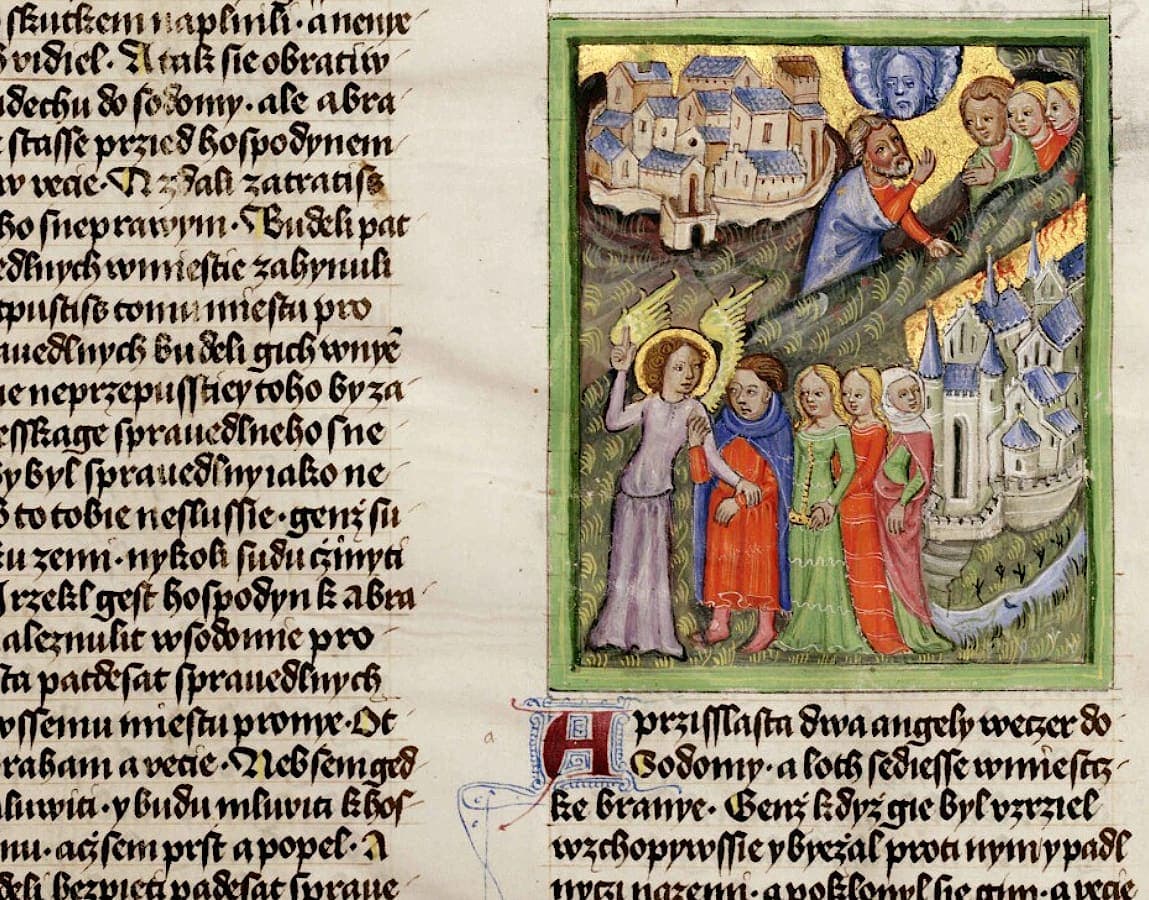 skutkem naplnili · a nenye
vidiel · A tak sie obratiw
dechu do sodomy · ale abra
stasse przied hospodynem
vecie · Zdali zatratiss
ho sneprawym · Budeli pat
edlnych wmiestie zahynuli
tpustiss tomu miestu pro
auedlnych budeli gich wnye
ne neprzepusstiey toho by za
esskage sprauedlneho sne
by byl sprauedlny iako ne
to tobie neslussie · genz su
zemi · nykoli sudu czinyti
I rzekl gest hospodyn k abra
aleznulit wsodomie pro
sta patdesat sprauedlnych
wssemu miestu pro nye · Ot
raham a vecie · Neb sem ged
luwiti · y budu mluwiti k hos
nu · acz sem prst a popel · A
deli bezpieti padesat spraue
A przisslasta dwa angely weczer do
Sodomy · a loth sediesse wmiestcz
ke branye · Genz kdyz gie byl vzrziel
wzchopywssie y byezal proti nym y padl
nyczi na zemi · a poklonyl sie gim · a vecie